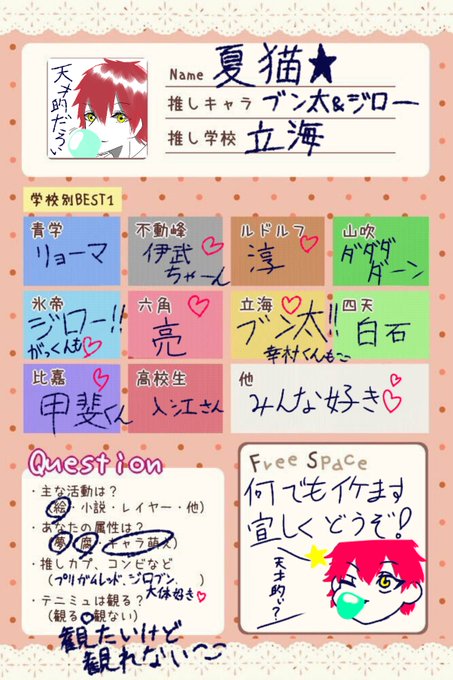 天才的だろぃ
Name 夏猫★
推しキャラ ブン太&ジロー
推し学校 立海
学校別BEST1
青学
リョーマ
不動峰
伊武
ちゃーん♡
ルドルフ
淳♡
山吹
ダダダ
ダーン
氷帝
ジロー!!
がっくんも♡
六角♡
亮
立海♡
ブン太!!
幸村くんも
四天
白石
比嘉♡
甲斐くん
高校生
入江さん
他
みんな好き♡
Question
・主な活動は?
(絵・小説・レイヤー・他)
・あなたの属性は?
(夢・腐・キャラ萌え)
・推しカプ、コンビなど
(プリガムレッド、ジロブン、
大体好き♡)
・テニミュは観る?
(観る・観ない)
観たいけど
観れない
Free Space
何でもイケます
宜しくどうぞ!
天才的ぃ?